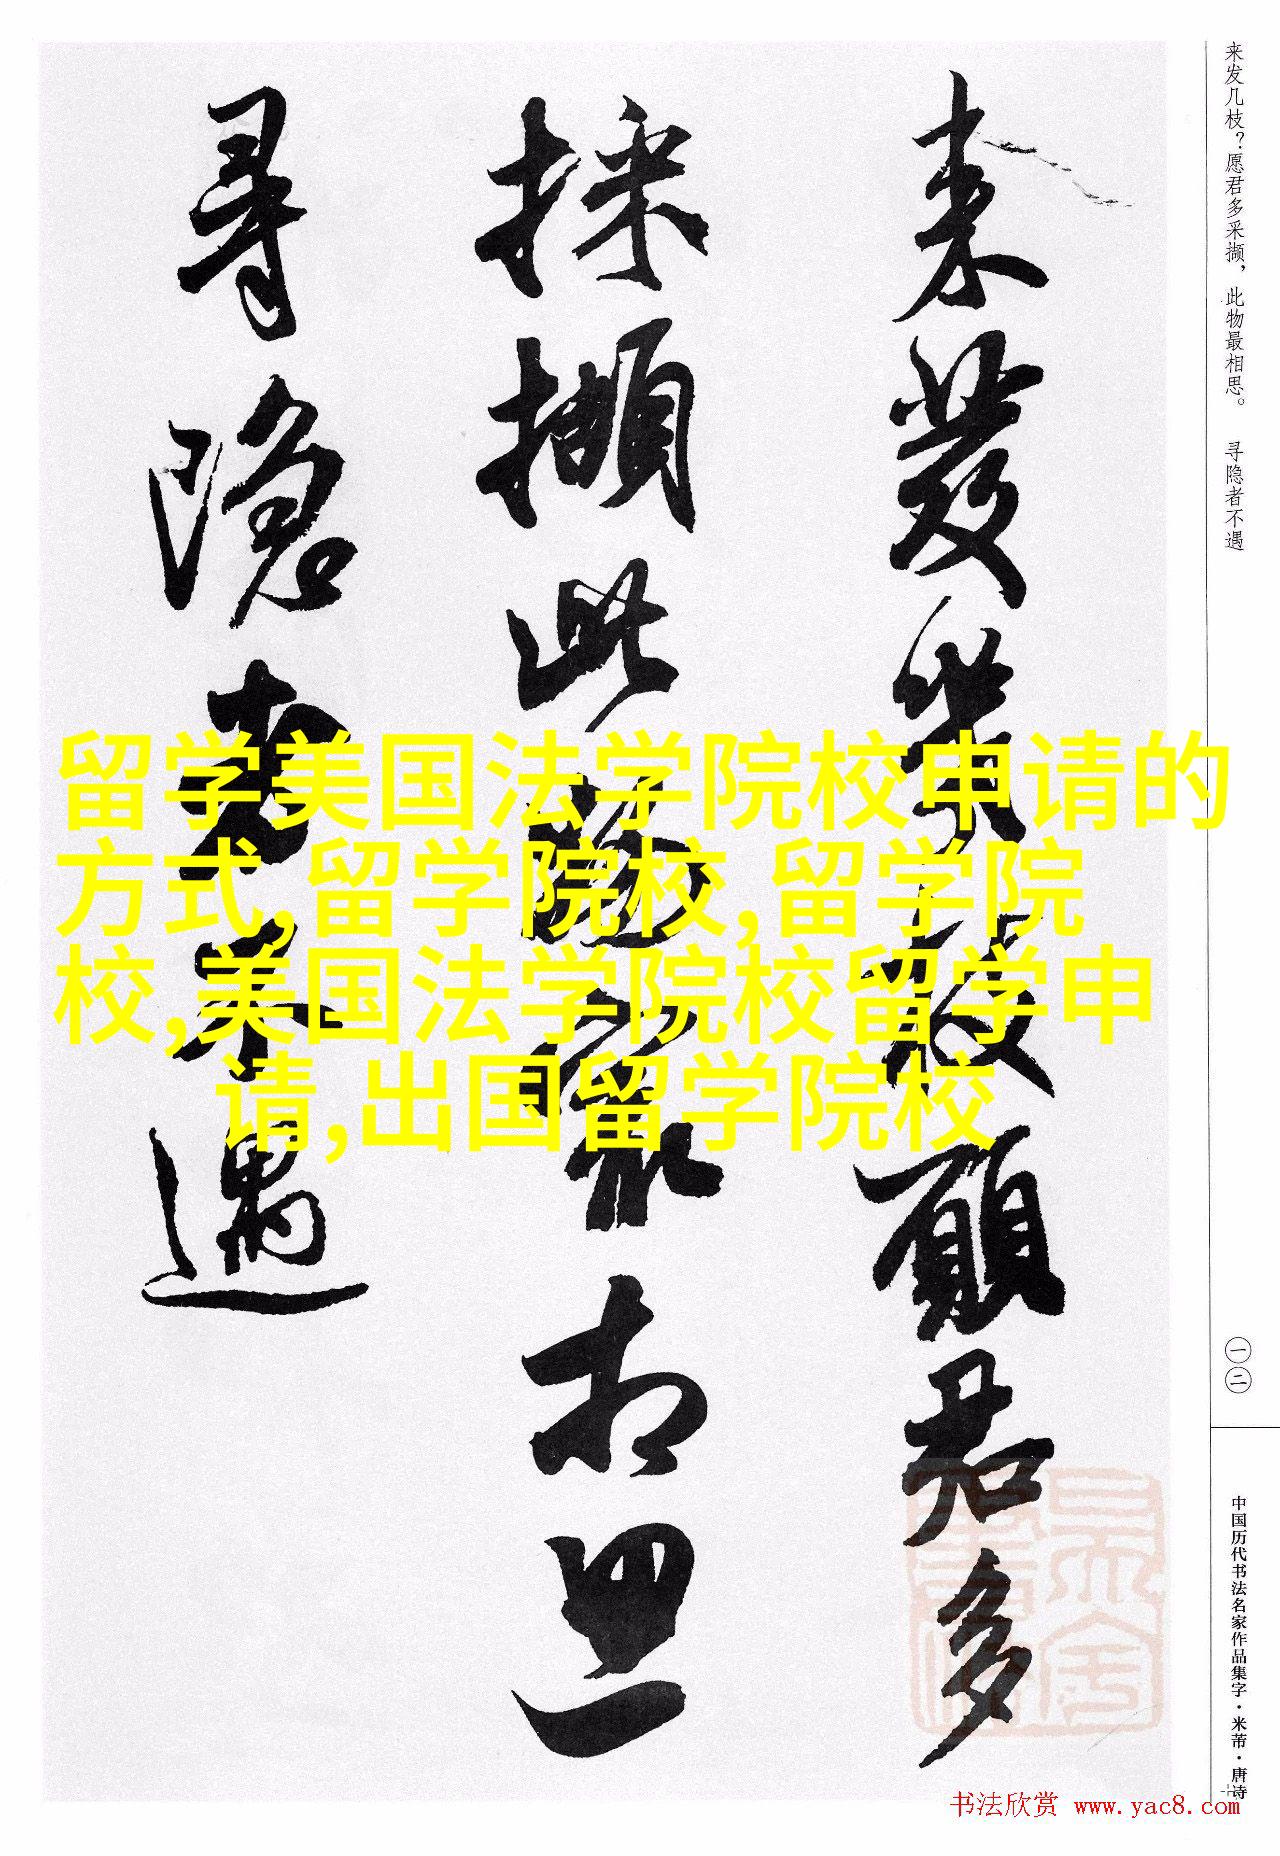 来发几枝？愿君多采撷，此物最相思。 寻隐者不遇
一二
中国历代书法名家作品集字·米芾·唐诗
来發幾枝願君多
採擷此物最相思
尋隐者不遇
留学美国法学院校申请的
方式,留学院校,留学院
校,美国法学院校留学申
请,出国留学院校
书法欣赏 www.yac8.com